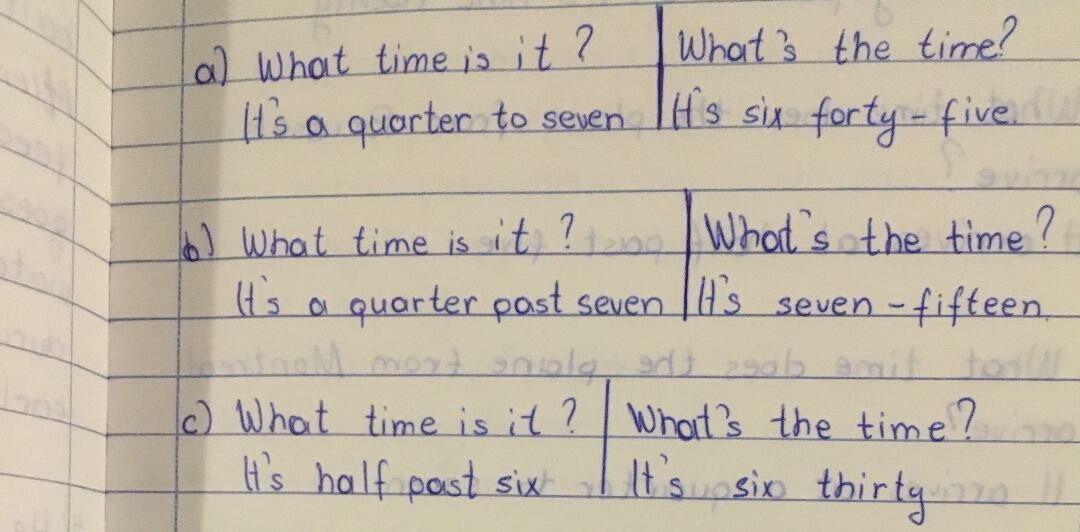 a) What time is it ? | What's the time?
It's a quarter to seven | It's six forty-five.
b) What time is it ? | What's the time ?
It's a quarter past seven | It's seven-fifteen.
c) What time is it ? | What's the time ?
It's half past six | It's six thirty